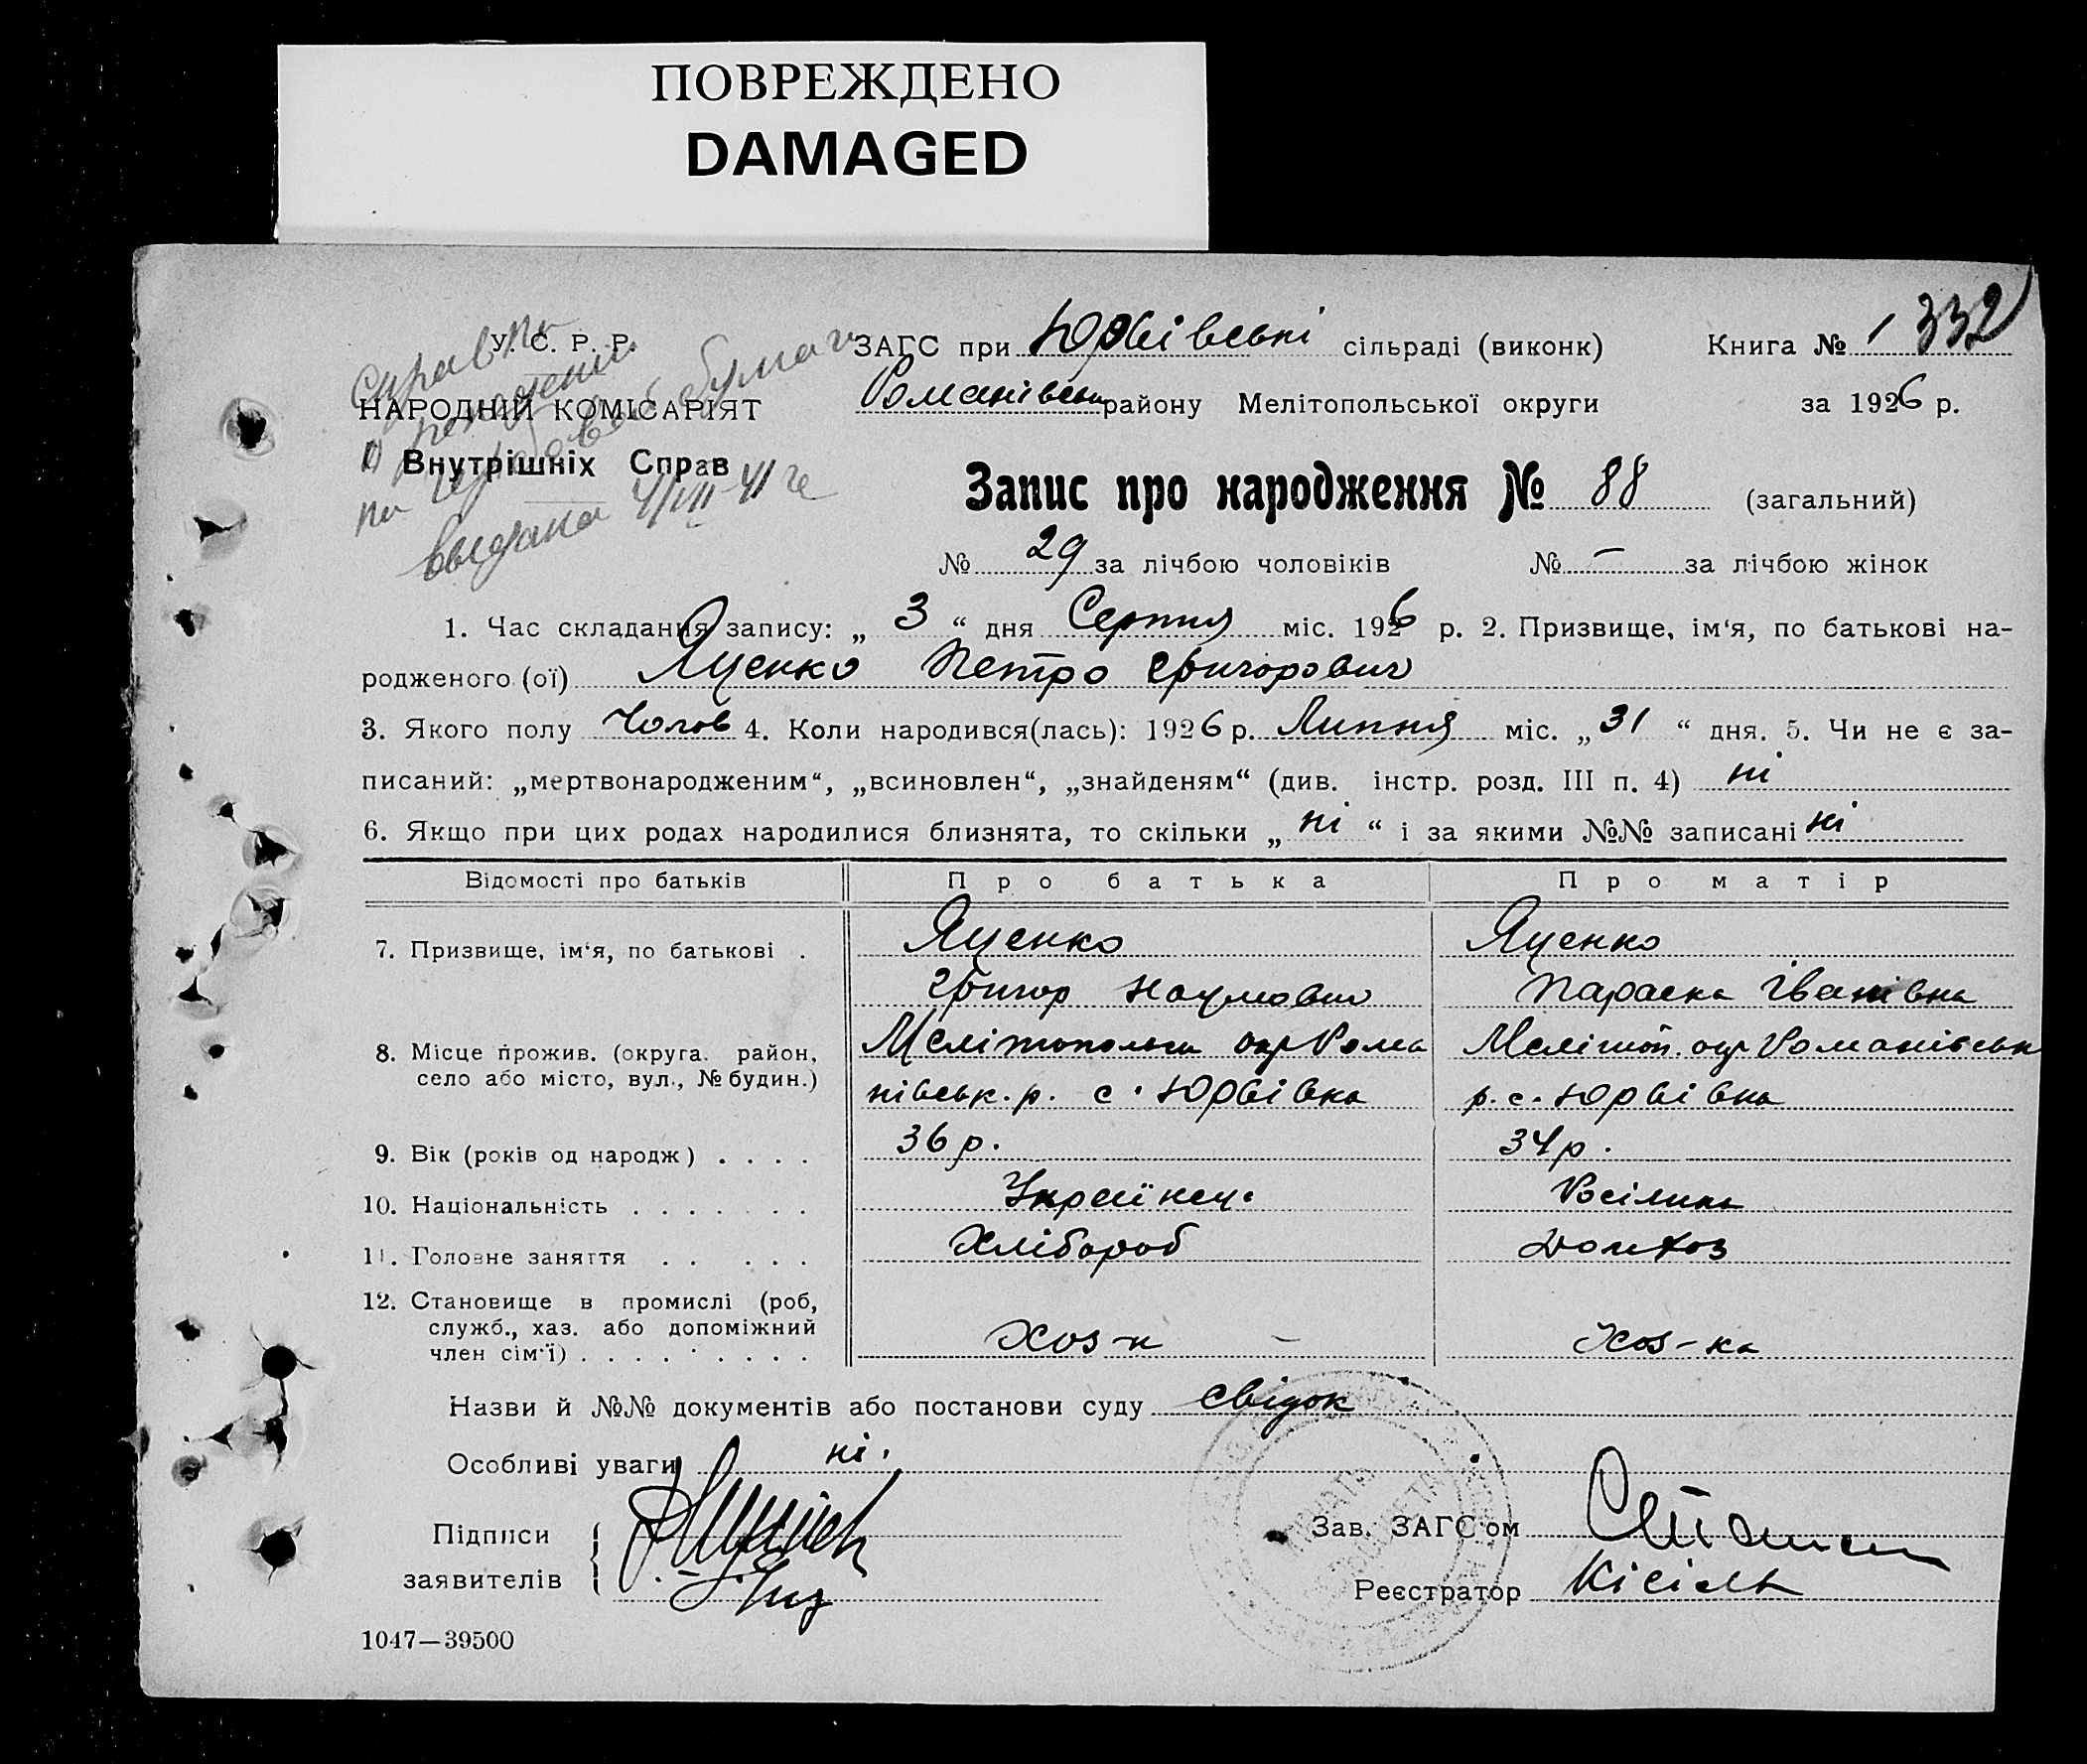 ПОВРЕЖДЕНО
DAMAGED
У. С. Р. Р.
НАРОДНІЙ КОМІСАРІЯТ
Внутрішніх Справ
Справка
о рождении
на гербовой бумаге
выдана 4/VII-41 г
ЗАГС при Юрʼївські сільраді (виконк) Книга № 1 332
Романівськ району Мелітопольської округи за 1926 р.
Запис про народження № 88 (загальний)
№ 29 за лічбою чоловіків № — за лічбою жінок
1. Час складання запису: „ 3 “ дня Серпня міс. 1926 р. 2. Призвище, ім‘я, по батькові на-
родженого (ої) Яценко Петро Григорович
3. Якого полу Чолов 4. Коли народився(лась): 1926 р. Липня міс. „ 31 “ дня. 5. Чи не є за-
писаний: „мертвонародженим“, „всиновлен“, „знайденям“ (див. інстр. розд. III п. 4) ні
6. Якщо при цих родах народилися близнята, то скільки „ ні “ і за якими №№ записані ні
Відомості про батьків Про батька Про матір
7. Призвище, ім‘я, по батькові . Яценко Яценко
Григор Наумович Параска Іванівна
8. Місце прожив. (округа, район, Мелітопольськ окр Рома Меліт оп. окр Романівськ
село або місто, вул., № будин.) нівськ. р. с. Юрʼївка р. с. Юрʼївка
9. Вік (років од народж) . . . . 36 р. 34 р.
10. Національність . . . . . . . Українец. Росіянка
11. Головне заняття . . . . . Хлібороб Домхоз
12. Становище в промислі (роб,
служб., хаз. або допоміжний
член сім‘ї) . . . . . . . . . Хоз-н — Хоз-ка
Назви й №№ документів або постанови суду свідок
Особливі уваги ні.
Підписи
заявителів
Зав. ЗАГС‘ом
Реєстратор Кісіль
1047—39500